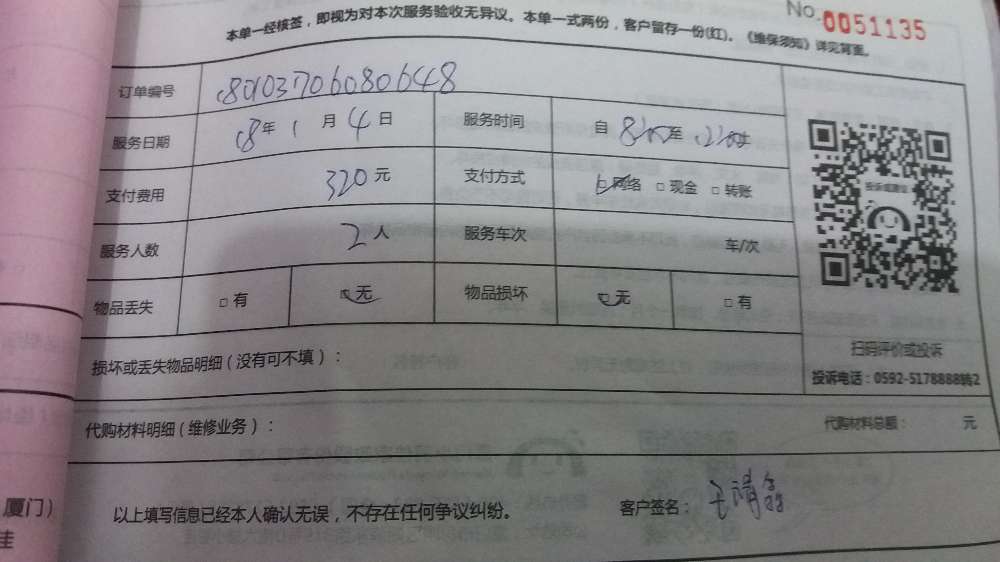 No. 0051135
本单一经核签，即视为对本次服务验收无异议。本单一式两份，客户留存一份(红)。《维保须知》详见背面。
订单编号 18010370608064​8
服务日期 18年 1 月 4 日 服务时间 自 至
支付费用 320元 支付方式 网络 □ 现金 □ 转账
服务人数 2人 服务车次 车/次
物品丢失 □ 有 □ 无 物品损坏 □ 无 □ 有
投诉或建议
扫码评价或投诉
投诉电话：0592-5178888转2
损坏或丢失物品明细（没有可不填）：
代购材料明细（维修业务）： 代购材料总额： 元
以上填写信息已经本人确认无误，不存在任何争议纠纷。 客户签名：
厦门）
佳